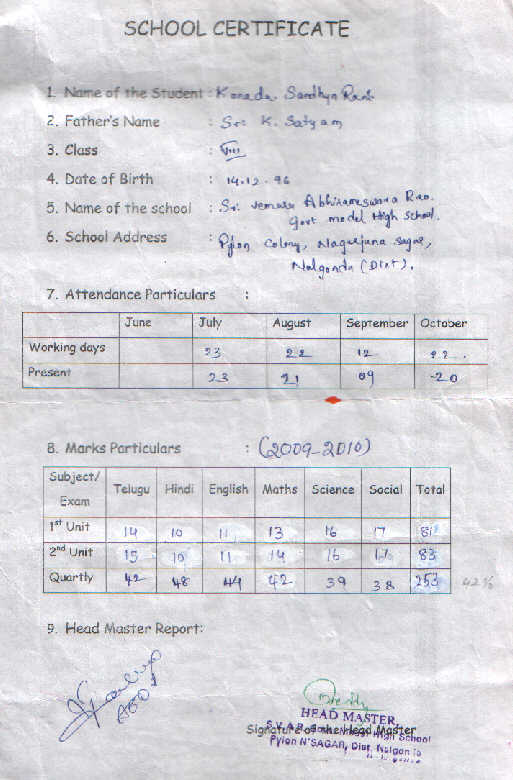 SCHOOL CERTIFICATE
1. Name of the Student : Kanada Sandhya Rani
2. Father's Name : Sri K. Satyam
3. Class : VIII
4. Date of Birth : 14.12.96
5. Name of the school : Sri vemasu Abhirameswara Rao.
Govt model High school.
6. School Address : Pylon Colony, Nagarjuna sagar,
Nalgonda (Dist).
7. Attendance Particulars :
June July August September October
Working days 23 22 12 22.
Present 23 21 09 -20
8. Marks Particulars : (2009-2010)
Subject/ Exam Telugu Hindi English Maths Science Social Total
1st Unit 14 10 11 13 16 17 81
2nd Unit 15 10 11 14 16 17 83
Quartly 42 48 44 42 39 38 253 42%
9. Head Master Report:
HEAD MASTER,
Signature of the Head Master
High School
Pylon N'SAGAR, Dist.